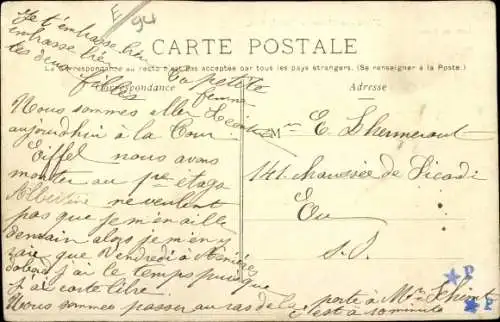 E
94
Je t'embrasse bien
embrasse bien
tes deux filles
CARTE POSTALE
La Correspondance au recto n'est pas acceptée par tous les pays étrangers. (Se renseigner à la Poste.)
Correspondance
Adresse
Ta petite
femme
Nous sommes aller
aujourdhui à la Tour
Eiffel nous avons
monter au 1er etage
Albertine ne veulent
pas que je m'en aille
demain alors je m'en
irai que Vendredi à Asnières
d'abord j'ai le temps puisque
j'ai carte libre.
Nous sommes passer au ras de la
porte à Mme
c'est à
M E. Lhermeroult
141 chaussée de Picardie
Eu
S. I.
P
P